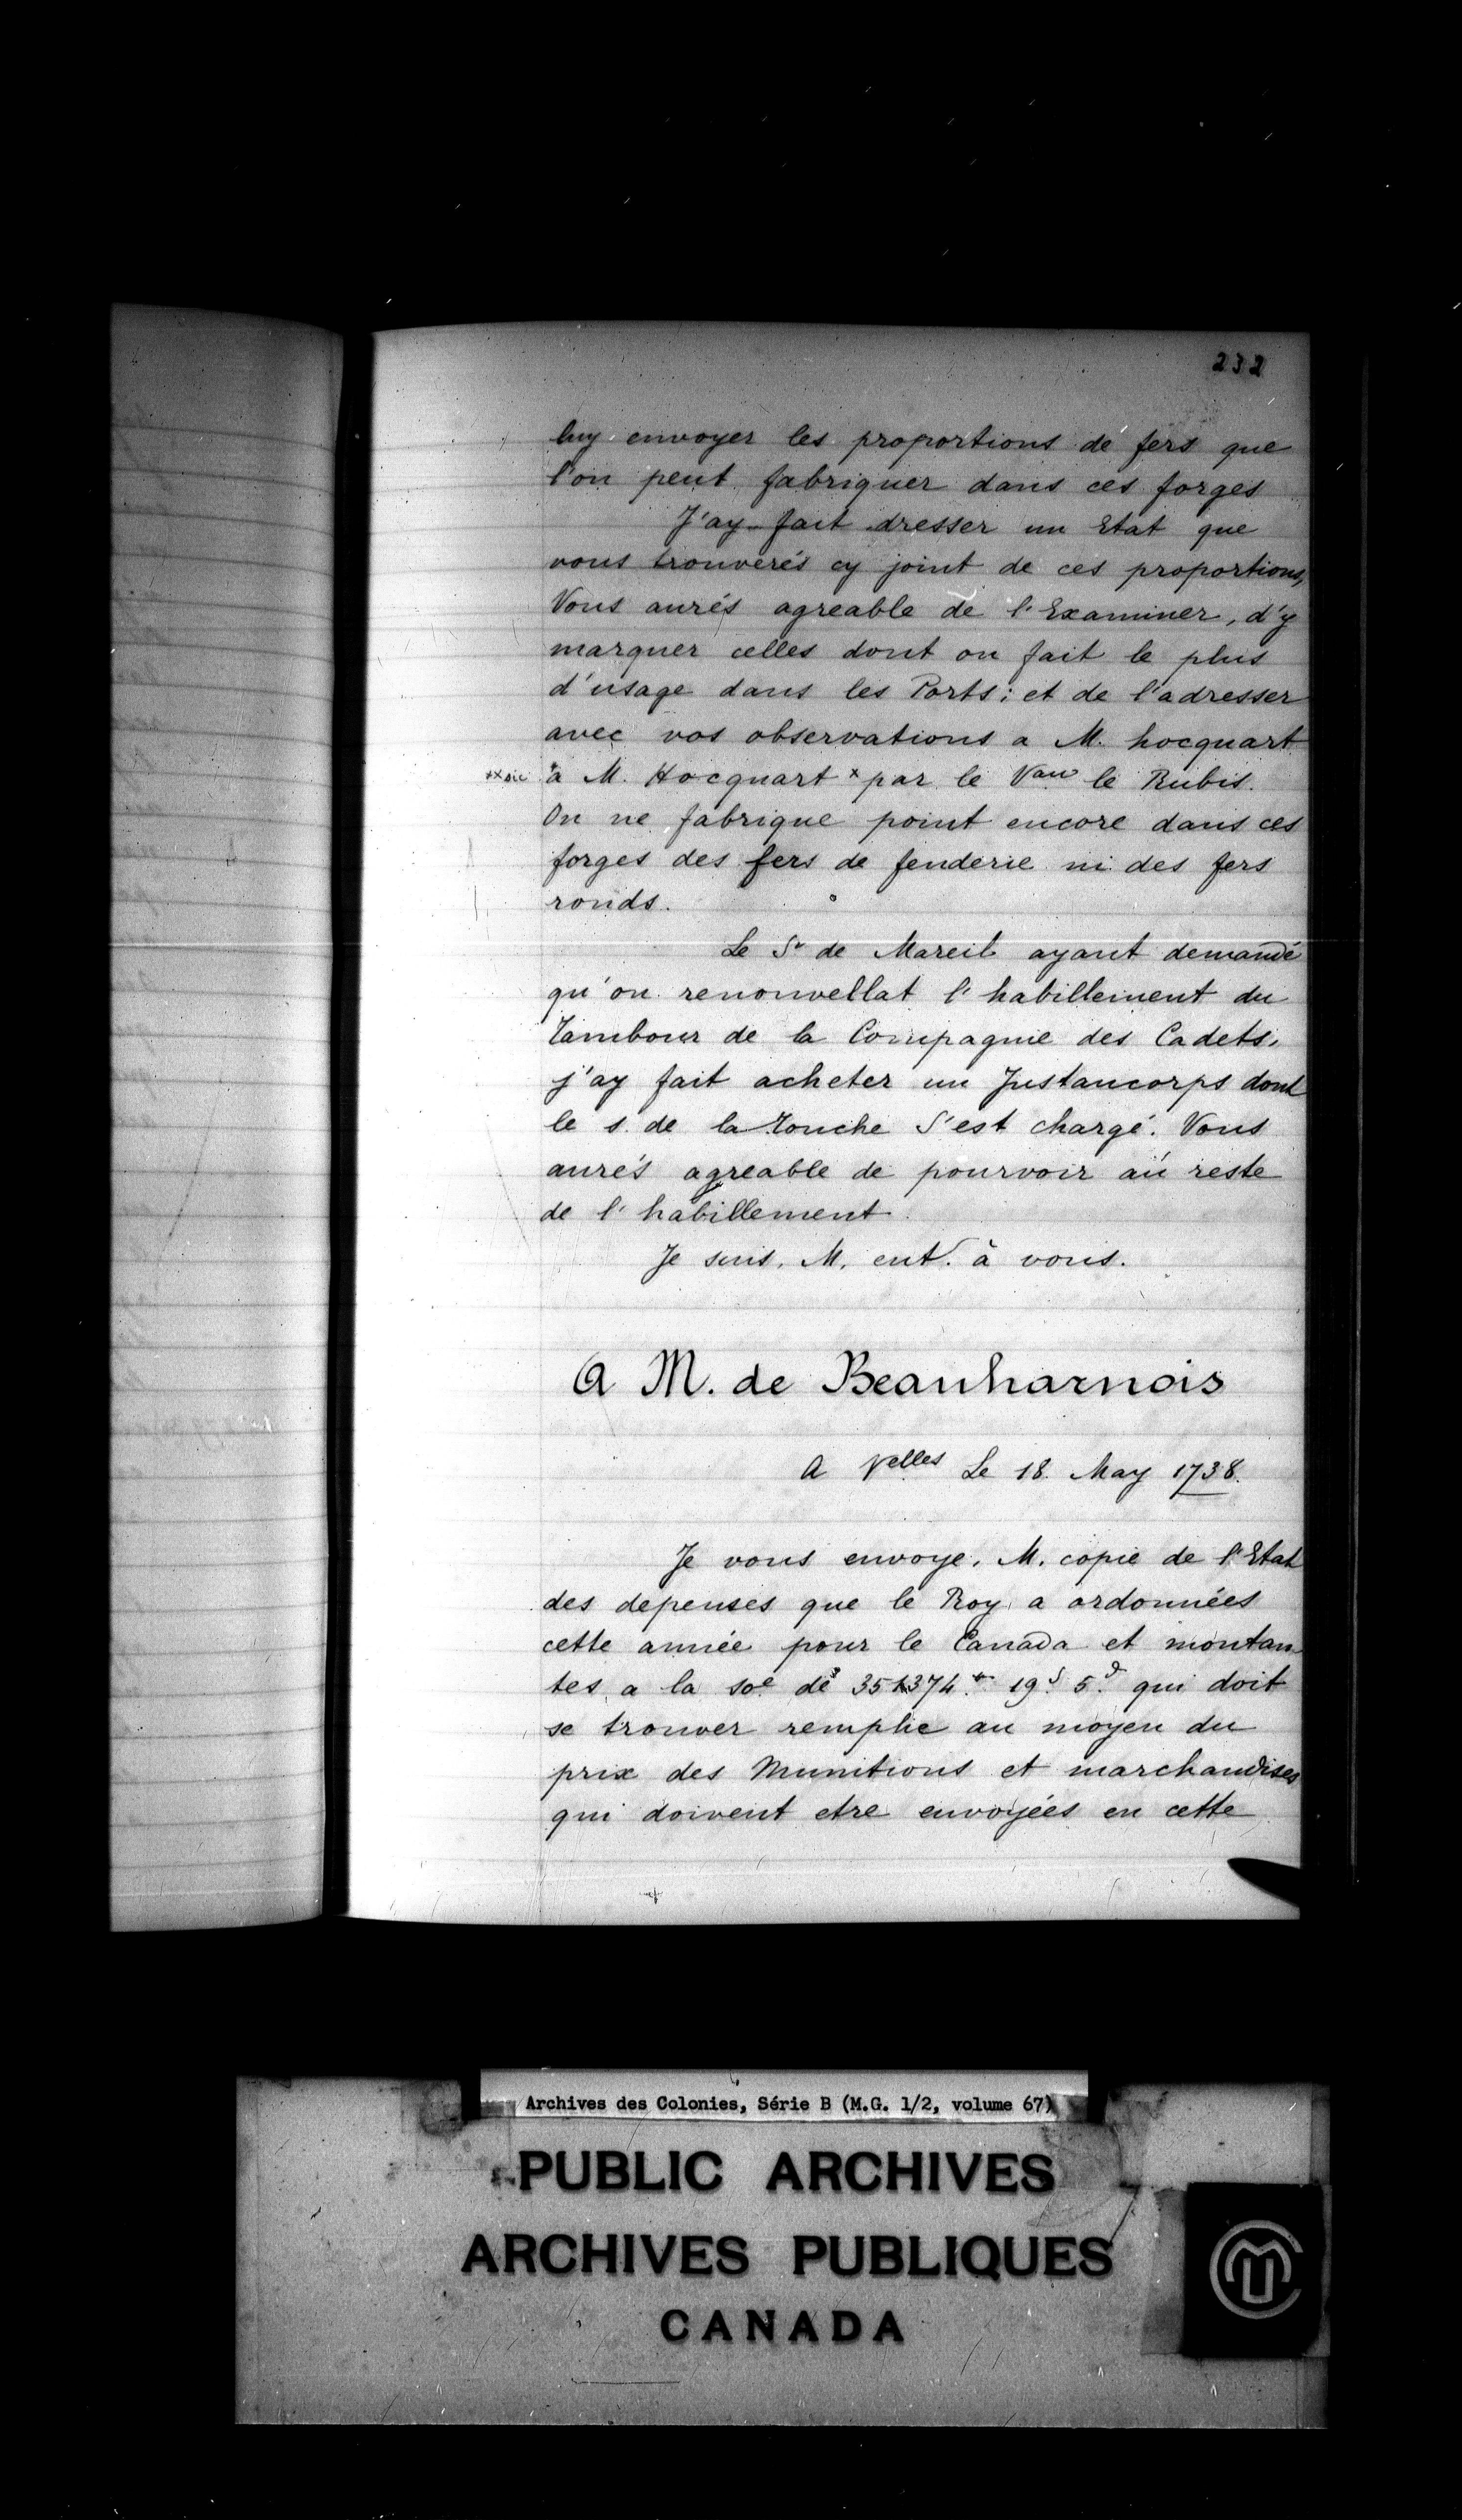 232
luy envoyer les proportions de fers que
l'on peut fabriquer dans ces forges
J'ay fait dresser un Etat que
vous trouverés cy joint de ces proportions,
Vous aurés agreable de l'Examiner, d'y
marquer celles dont on fait le plus
d'usage dans les Ports; et de l'adresser
avec vos observations a M. hocquart
xx sic x a M. Hocquart x par le Vau le Rubis.
On ne fabrique point encore dans ces
forges des fers de fenderie ni des fers
ronds.
Le Sr de Mareil ayant demandé
qu'on renouvellat l'habillement du
Tambour de la Compagnie des Cadets,
j'ay fait acheter un Justaucorps dont
le s. de la Touche S'est chargé. Vous
aurés agreable de pourvoir au reste
de l'habillement.
Je suis, M. ent. à vous.
A M. de Beauharnois
A Velles Le 18 May 1738.
Je vous envoye, M. copie de l'Etat
des depenses que le Roy a ordonnées
cette année pour le Canada et montan-
tes a la soe de 351374tt 19s 5d qui doit
se trouver remplie au moyen du
prix des Munitions et marchandises
qui doivent etre envoyées en cette
Archives des Colonies, Série B (M.G. 1/2, volume 67)
PUBLIC ARCHIVES
ARCHIVES PUBLIQUES
CANADA